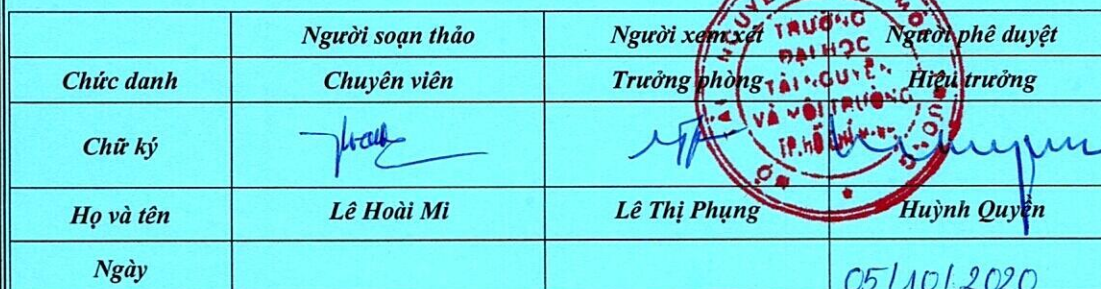 Người soạn thảo Người xem xét Người phê duyệt
Chức danh Chuyên viên Trưởng phòng Hiệu trưởng
Chữ ký
Họ và tên Lê Hoài Mi Lê Thị Phụng Huỳnh Quyền
Ngày 05/10/2020
TRƯỜNG
ĐẠI HỌC
TÀI NGUYÊN
VÀ MÔI TRƯỜNG
TP. HỒ CHÍ MINH